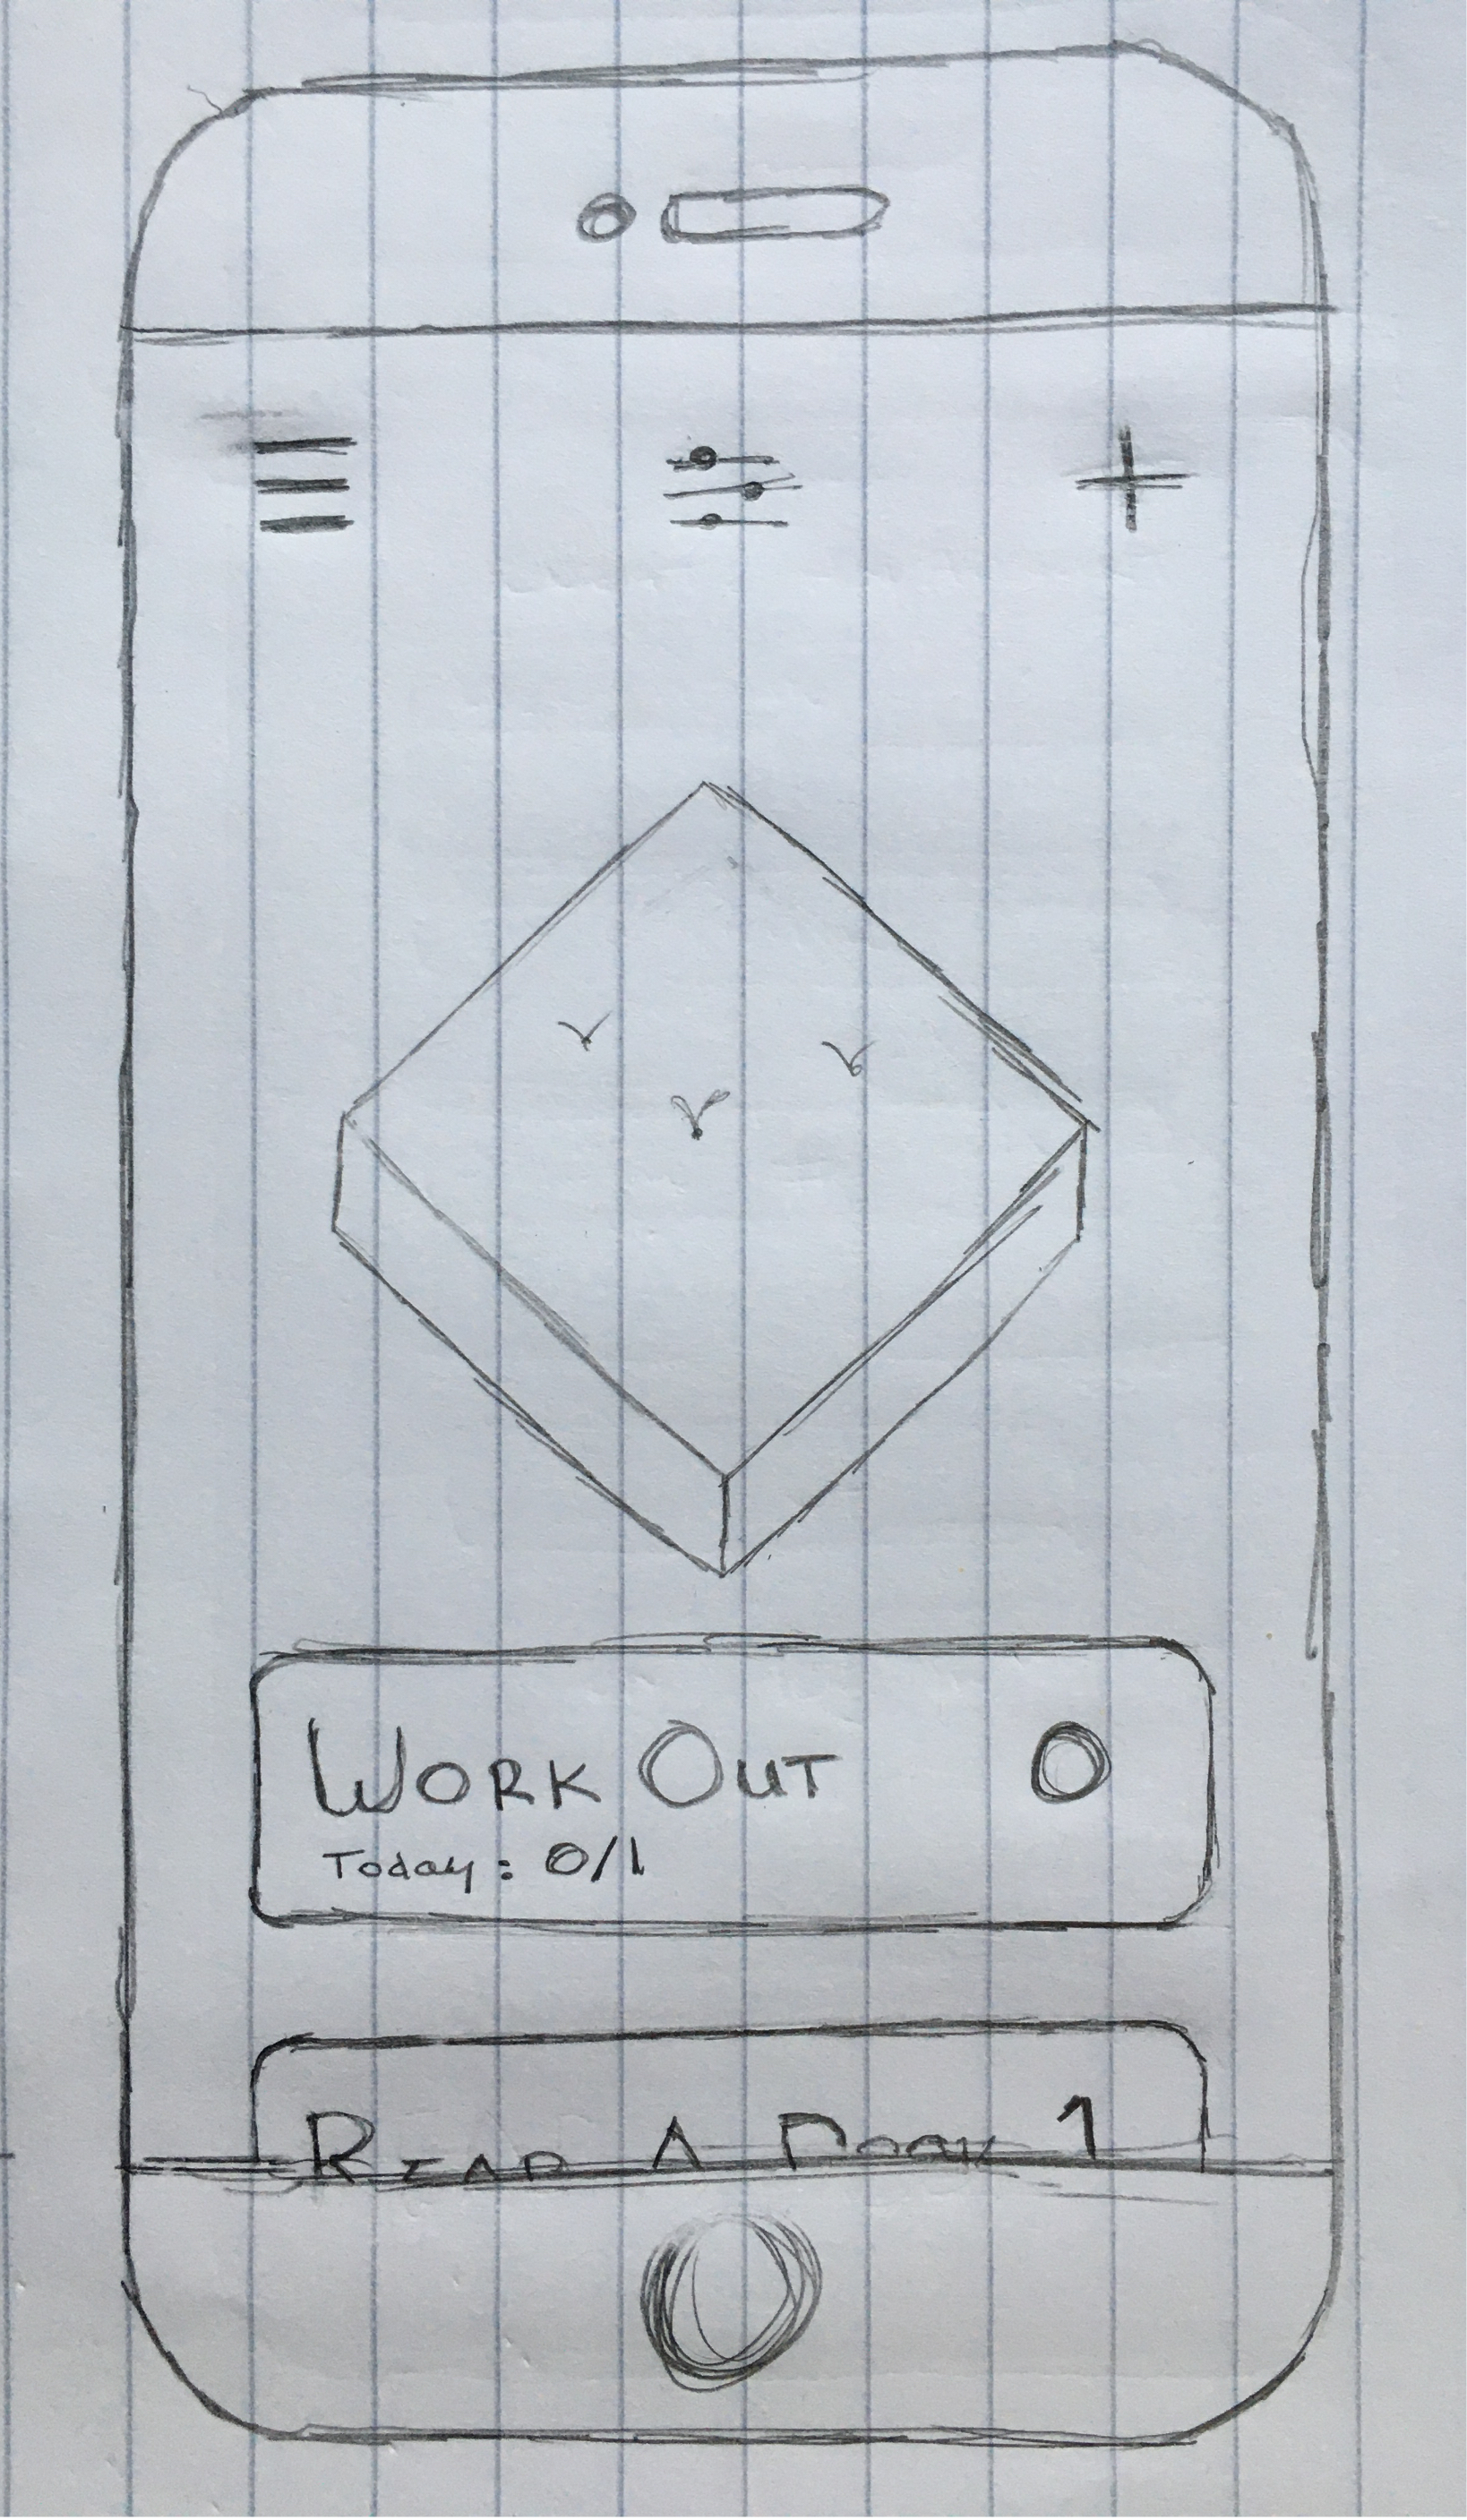 WORK OUT 0
Today: 0/1
READ A BOOK 1